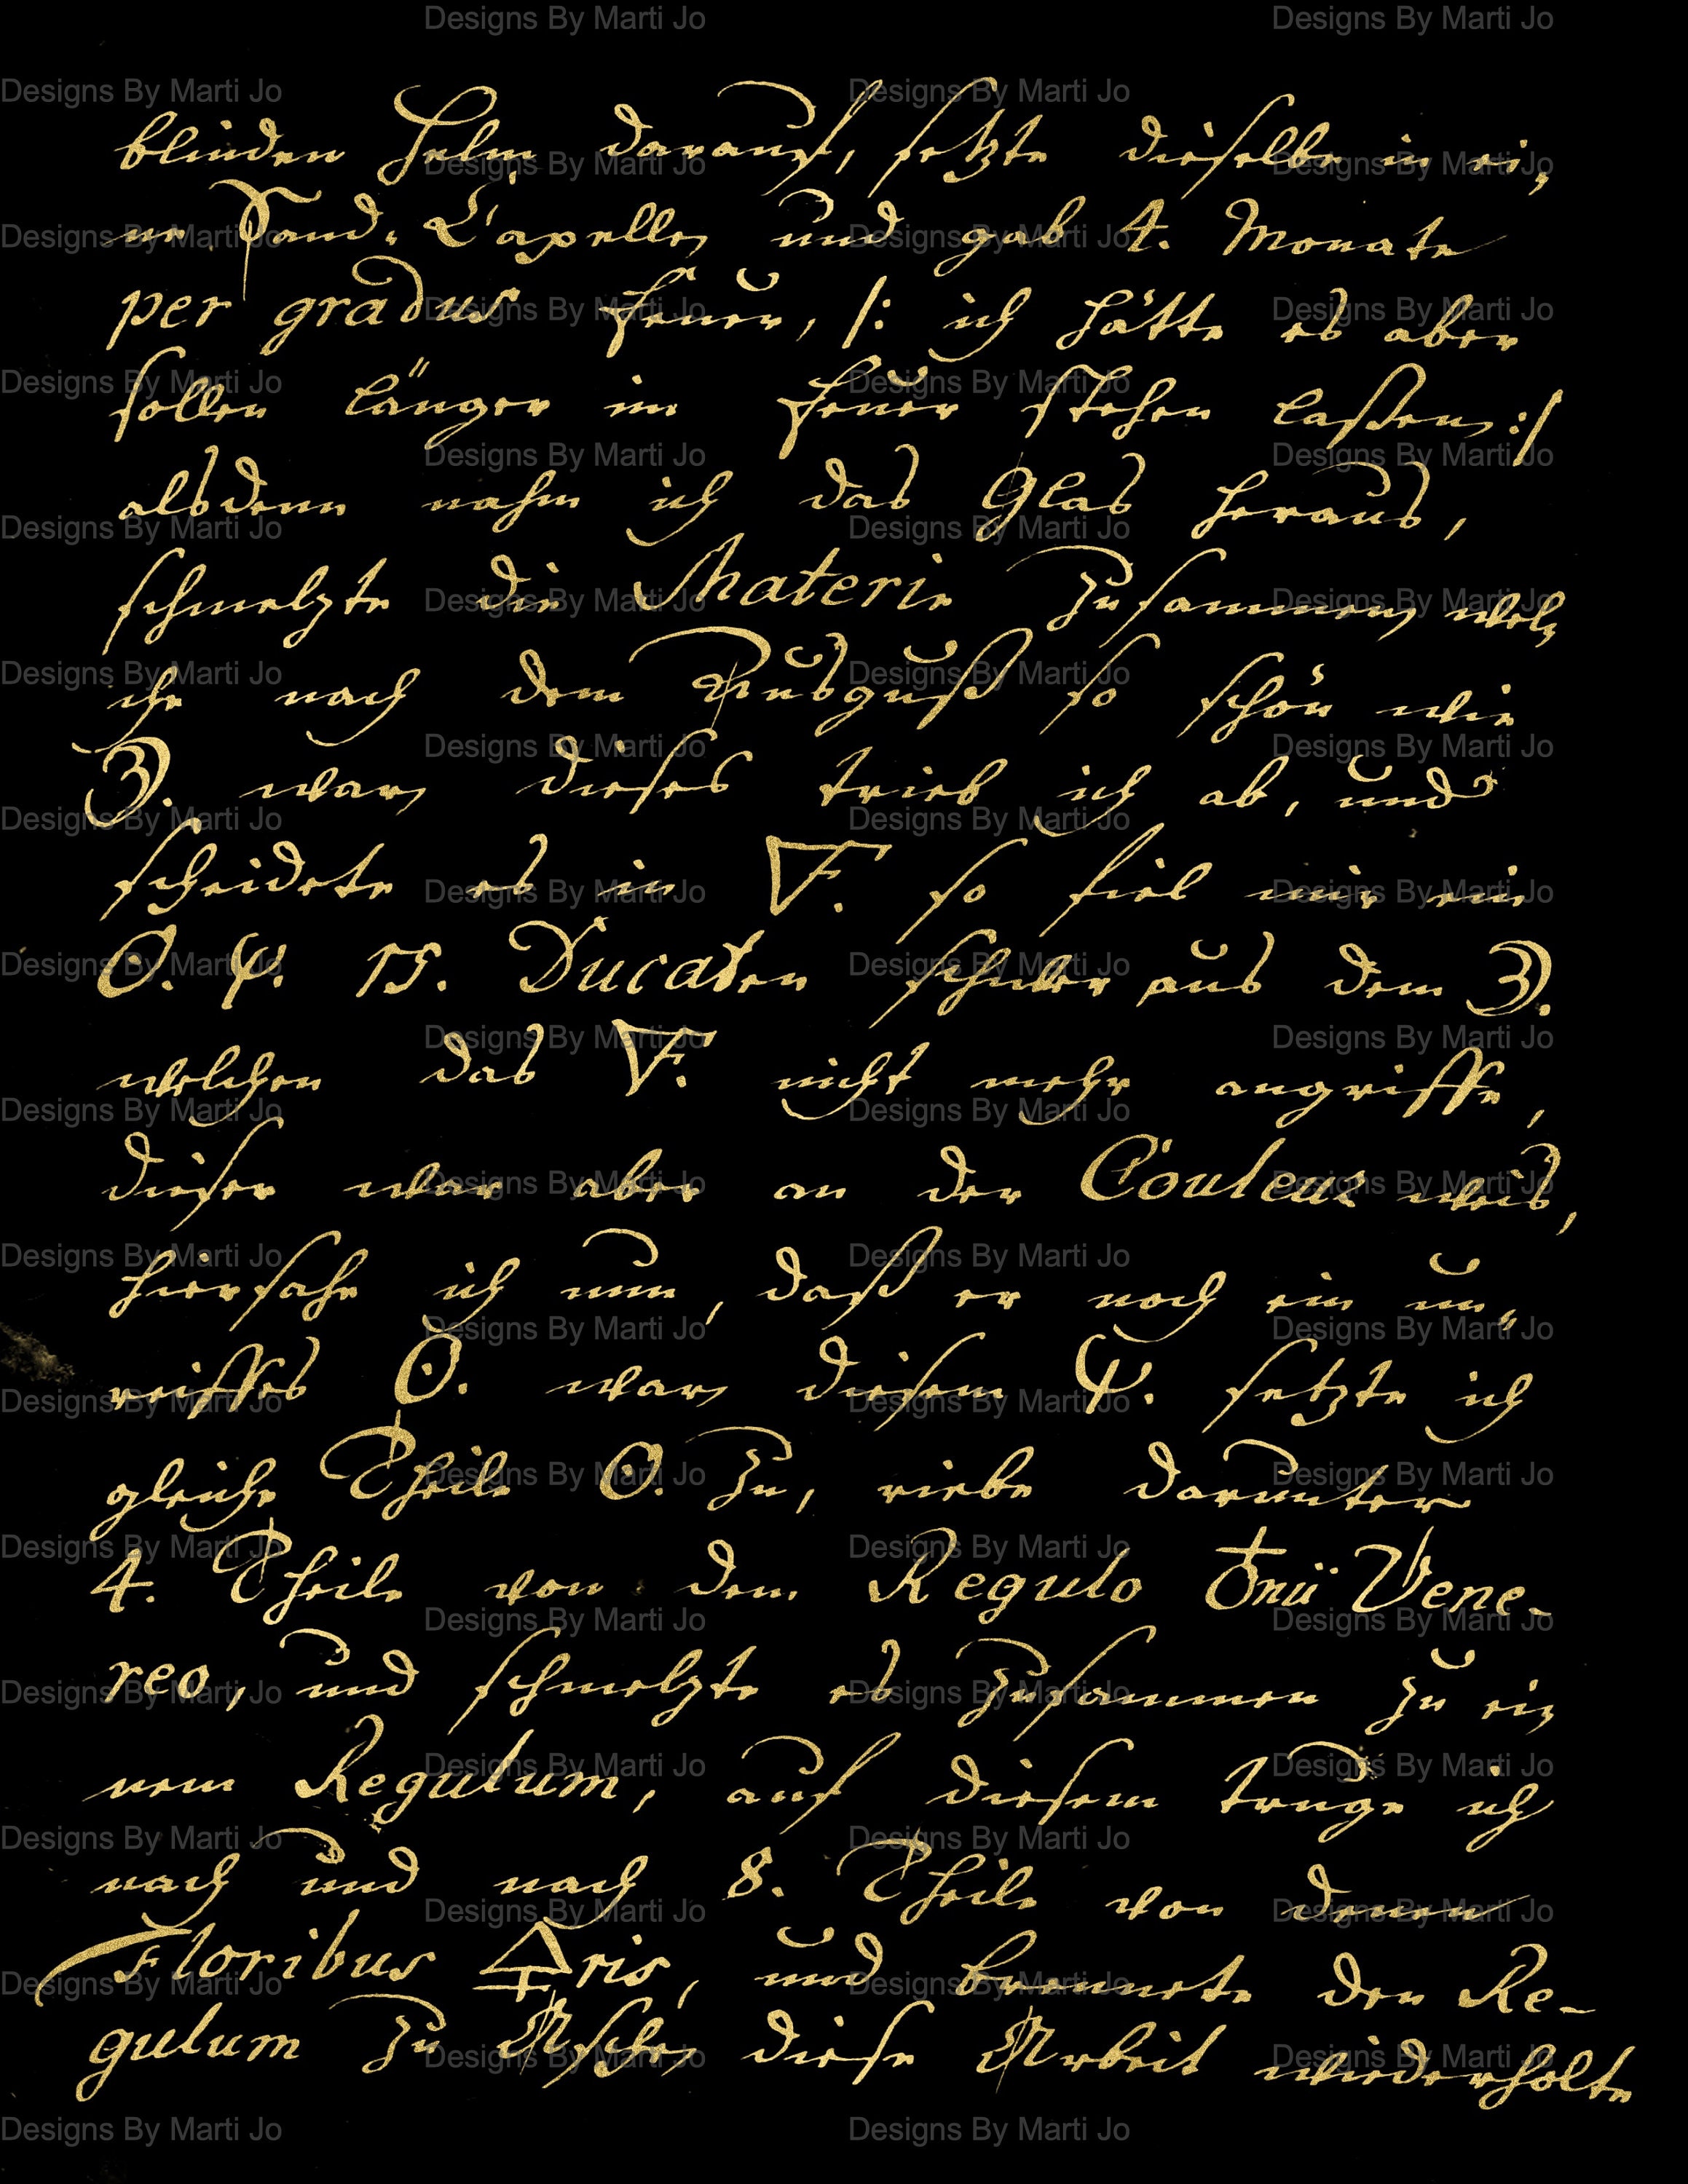 blinden Helm darauf, setzte dieselbe in ei,
ne Sand. Capelle, und gab 4. Monate
per gradus Feuer, /: ich hätte es aber
sollen länger im Feuer stehen laßen, :/
alsdenn nahm ich das Glas heraus,
schmelzte die Materie zusammen, wel,
che nach dem Ausguß so schön wie
☽. war, dieses trieb ich ab, und
scheidete es in 🜅. so fiel mir ein
☉. 15. Ducaten schwer aus dem ☽.
welchen das 🜅. nicht mehr angriffe,
dieser war aber an der Couleur weis,
hier sahe ich nun, daß er noch ein un„
reiffes ☉. war, diesem setzte ich
gleiche Theile ☉. zu, riebe darunter
4. Theile von dem Regulo Vene-
reo, und schmelzte es zusammen zu ei,
nem Regulum, auf diesem truge ich
nach und nach 8. Theile von denen
Floribus 🜍ris, und brennete den Re-
gulum zu Asche, diese Arbeit wiederholte
Designs By Marti Jo